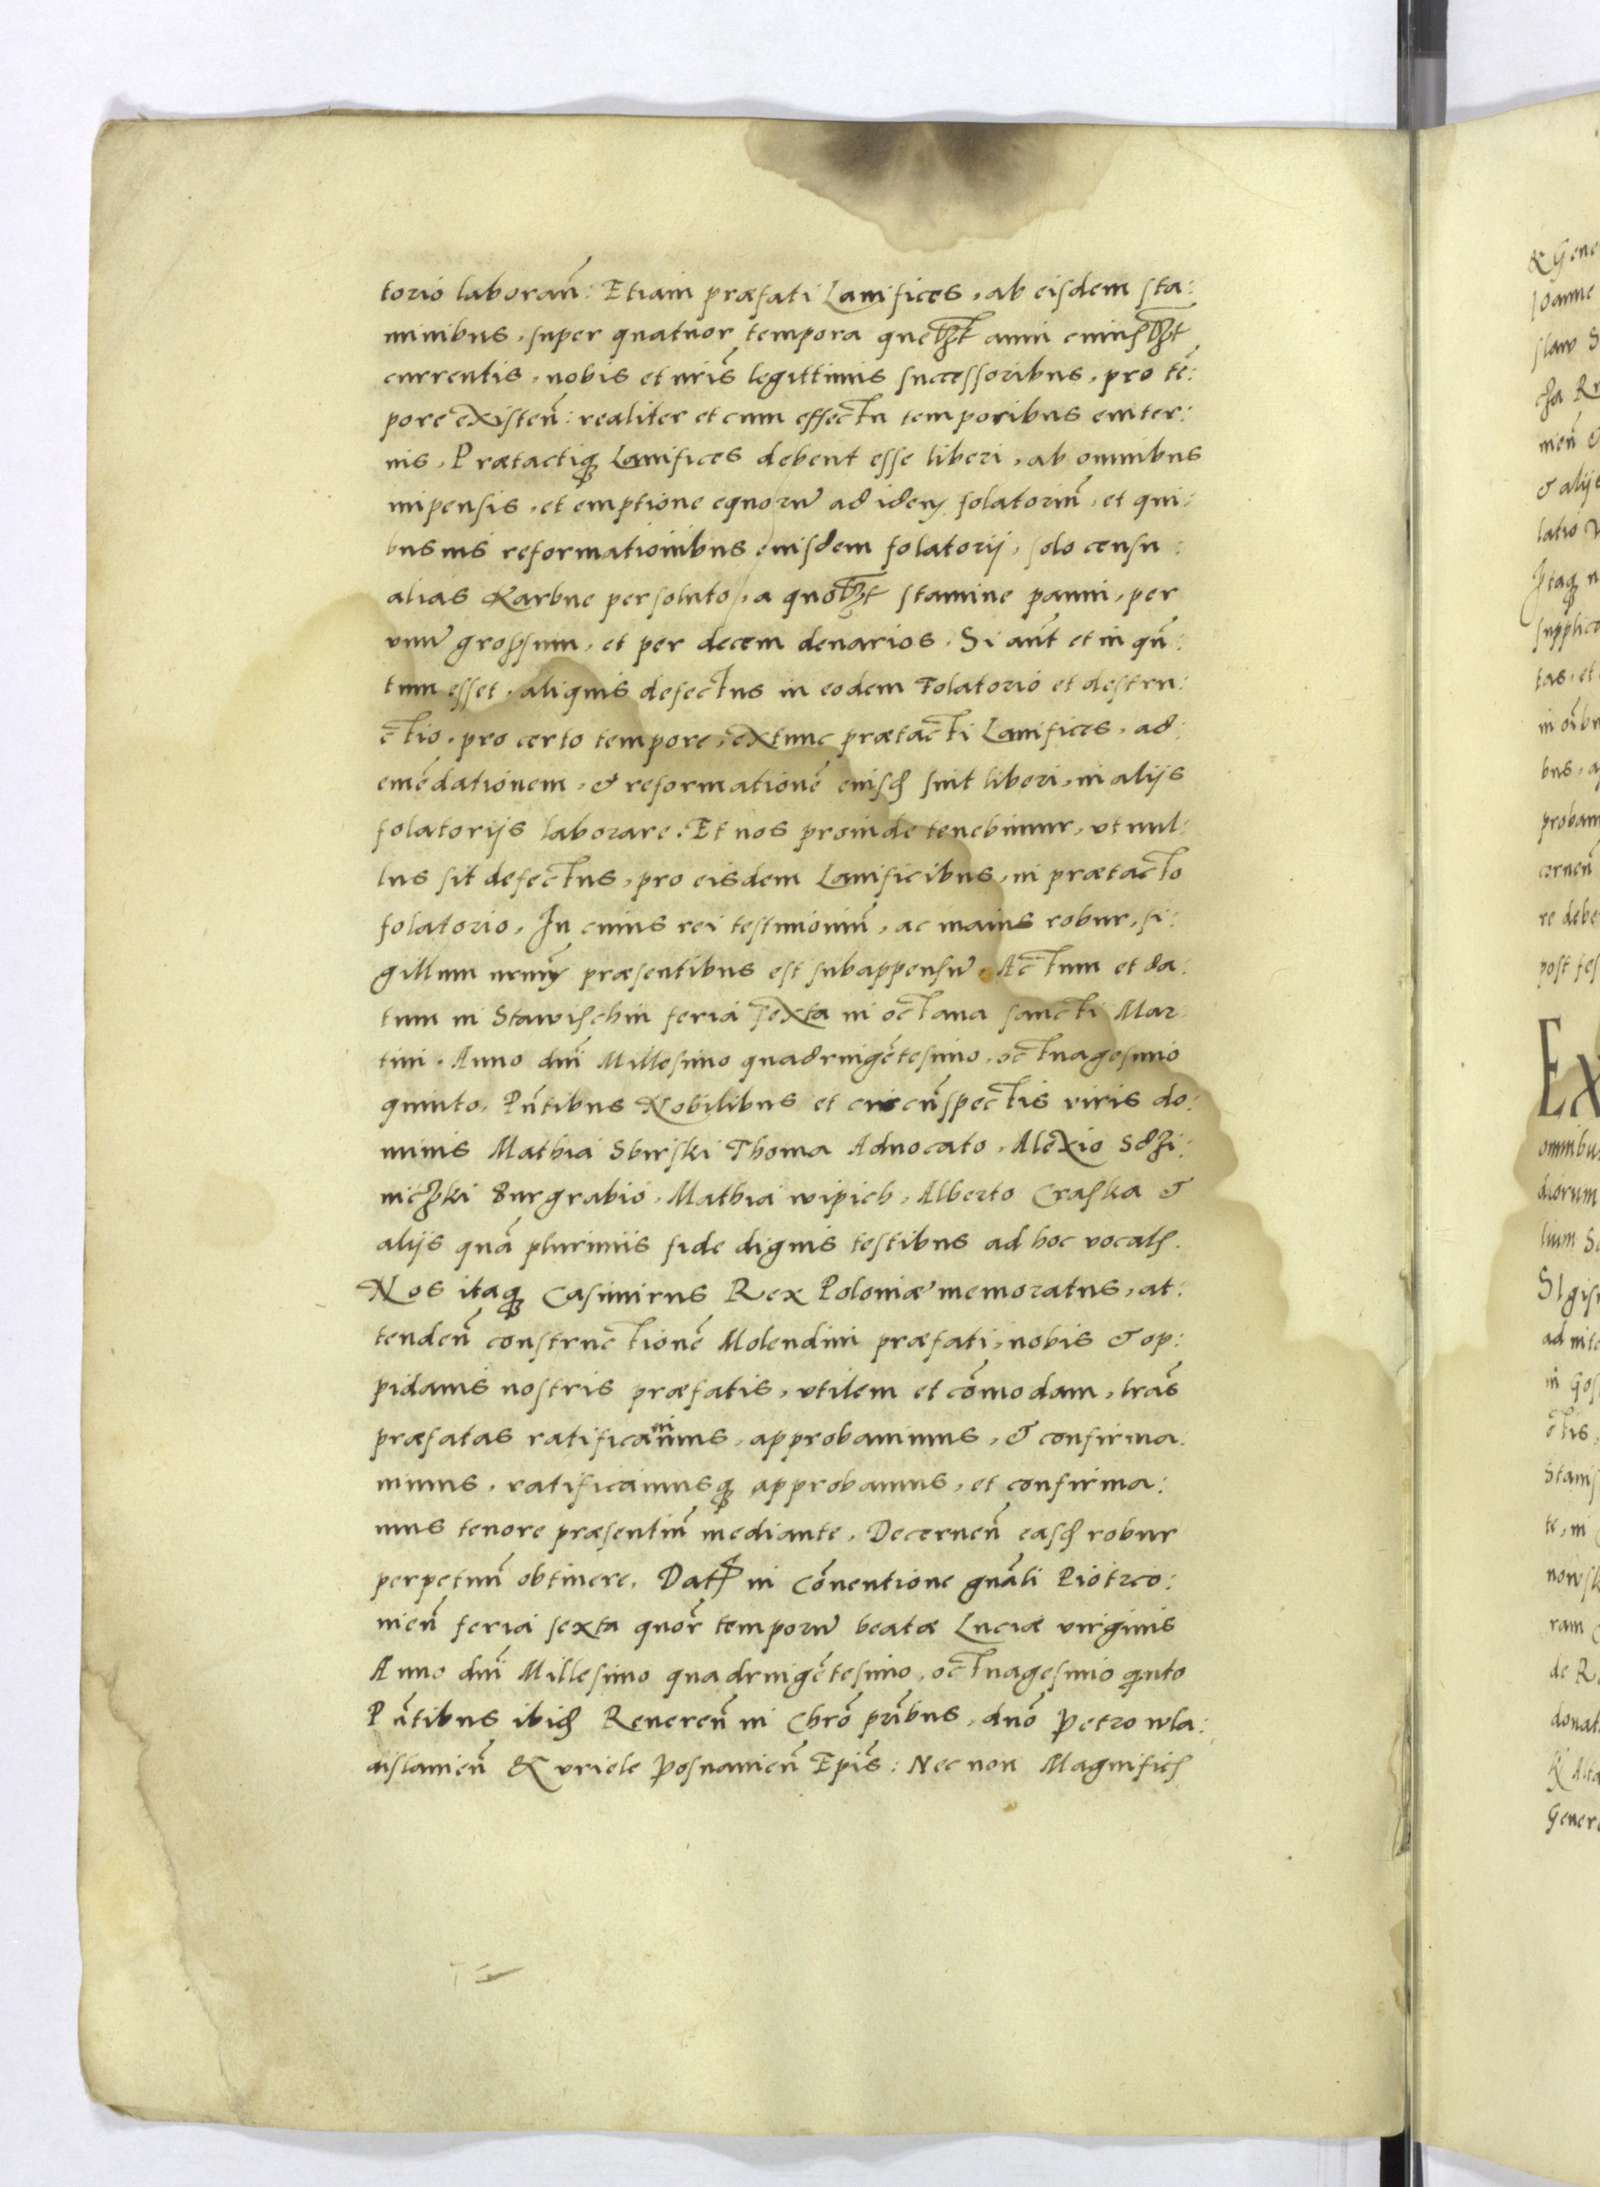 torio laborañ: Etiam præfati Lanifices, ab eisdem sta:
minibus, super quatuor tempora anni
currentis, nobis et nr̃is legittimis successoribus, pro tẽ:
pore existeñ: realiter et cum effectu temporibus emiter:
nis, Prætactiq Lanifices debent esse liberi, ab omnibus
impensis, et emptione equorũ ad idem folatoriũ, et qui:
busuis reformationibus euisdem folatorij, solo censu:
alias Karbne persoluto, a stamine panni, per
vnũ grossum, et per decem denarios. Si aũt et in qñ:
tum esset, aliquis defectus in eodem Folatorio et destru:
ctio, pro certo tempore, extunc prætacti Lanifices, ad:
emẽdationem, & reformationẽ euisd sint liberi, in alijs
folatorijs laborare. Et nos proinde tenebimur, vt nul:
lus sit defectus, pro eisdem Lanificibus, in prætacto
folatorio. In cuius rei testimoniũ, ac maius robur, si:
gillum præsentibus est subappensũ. Actum et da:
tum in Stawischin feria sexta in octaua sancti Mar:
tini. Anno dñi Millesimo quadringẽtesimo, octuagesimo
quinto. Pñtibus Nobilibus et circũspectis viris do:
minis Mathia Sbirski Thoma Aduocato, Alexio
burgrabio, Mathia wipich, Alberto Craska &
alijs quã plurimis fide dignis testibus ad hoc
Nos itaq Casimirus Rex Poloniæ memoratus, at:
tendeñ constructionẽ Molendini præfati, nobis & op:
pidanis nostris præfatis, vtilem et cõmodam, lr̃as
præfatas ratificauimus, approbauimus, & confirma:
uimus, ratificamusq approbamus, et confirma:
mus tenore præsentiũ mediante. Decerneñ easd robur
perpetuũ obtinere. Dat in Cõuentione gñali Piotrco:
uieñ feria sexta quor̃ temporũ beatæ Luciæ virginis
Anno dñi Millesimo quadringẽtesimo, octuagesimo qinto
Pñtibus ibid Reuereñ in Chrõ pr̃ibus, dnõ Petro wla:
dislauieñ & vriele Posnanieñ Ep̃is: Nec non